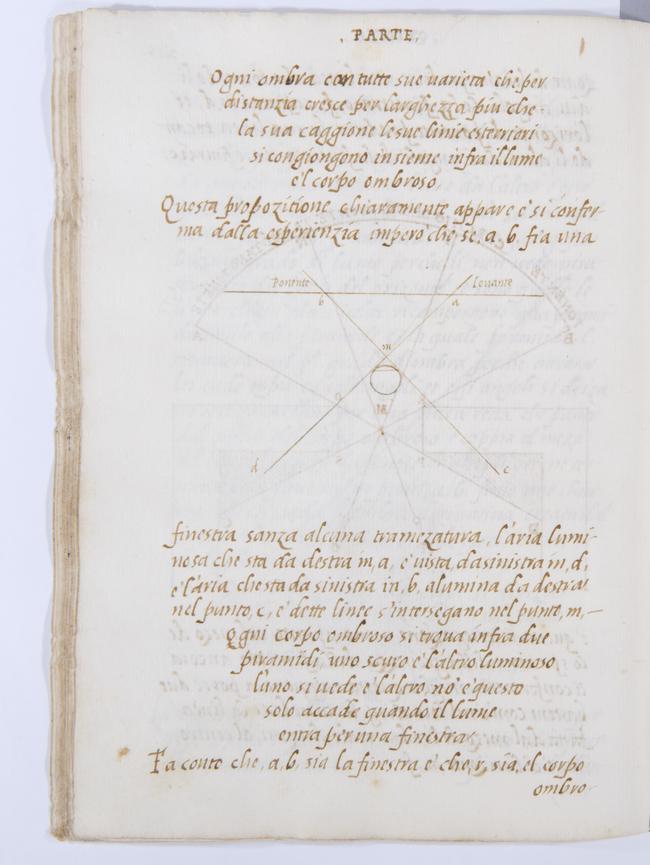 . PARTE.
Ogni ombra con tutte sue varieta che per
distanzia cresce per larghezza piu che
la sua caggione le sue linie esteriori
si congiongono insieme infra il lume
e'l corpo ombroso.
Questa propozitione chiaramente appare e' si confer-
ma dalla esperienzia impero che se, a, b, fia una
Ponente
Leuante
b
a
m
d
c
finestra sanza alcuna tramezatura, l'aria lumi-
nosa che sta da destra in, a, e' uista, da sinistra in, d,
e l'aria che sta da sinistra in, b, alumina da destra
nel punto, c, e' dette linee s'intersegano nel punto, m,-
Ogni corpo ombroso si truoua infra due
piramidi, uno scuro e l'altro luminoso,
l'uno si uede e l'altro no' e questo
solo accade quando il lume
entra per una finestra.
Fa conto che, a, b, sia la finestra e' che, r, sia, el corpo
ombro